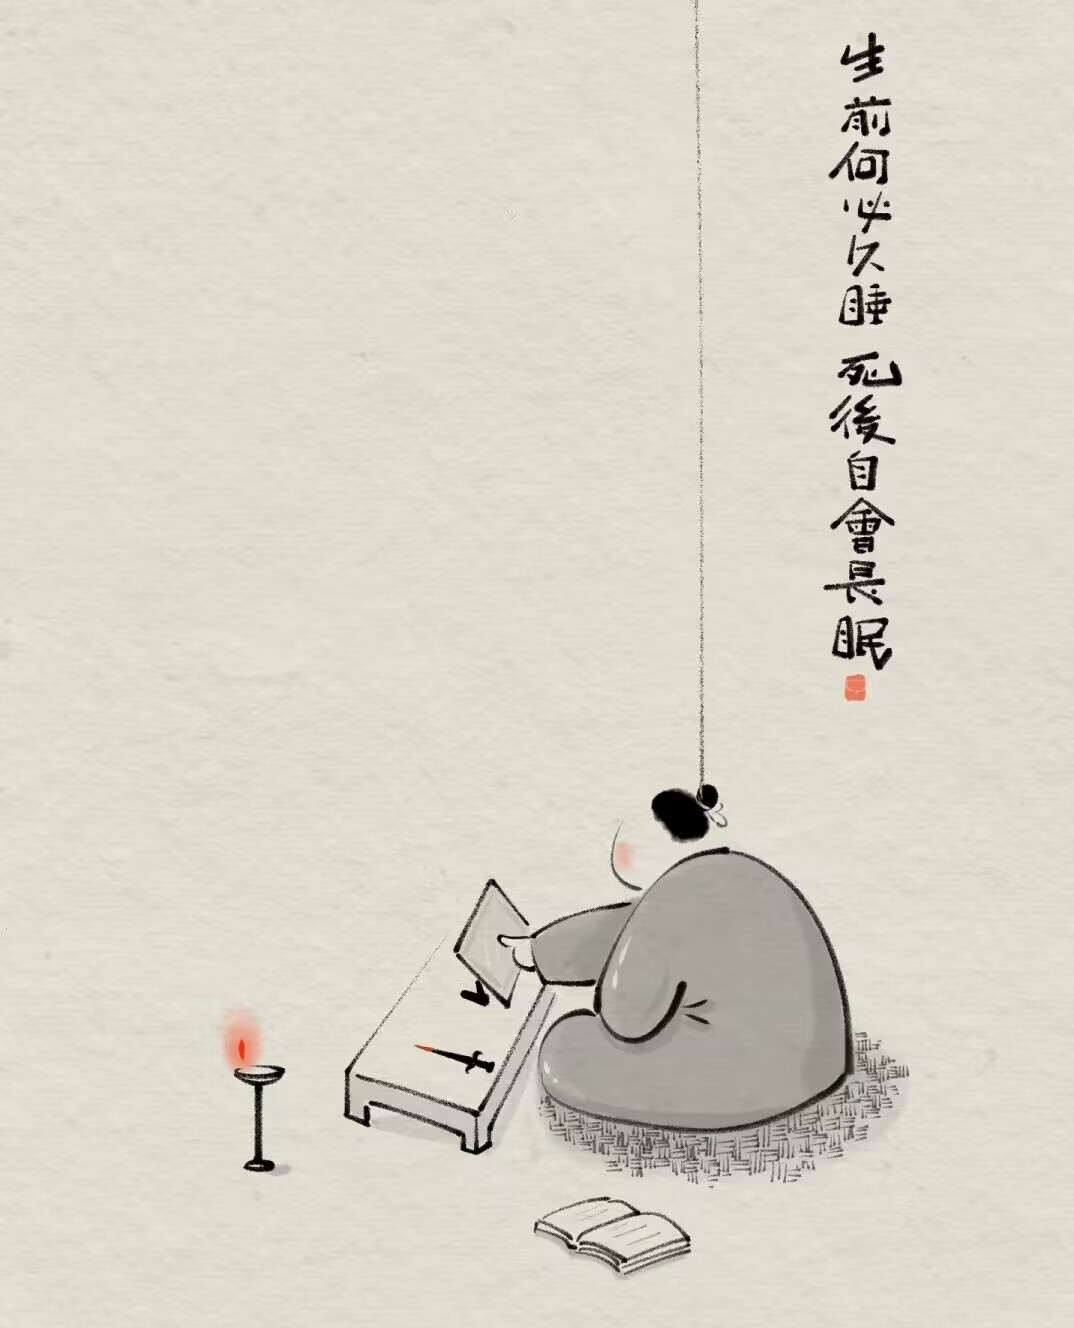 生前何必久睡 死後自會長眠